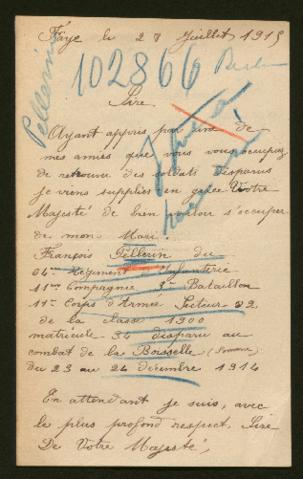 Faye le 28 Juillet 1915
Pellerin
102866
Berlin
Sire
Ayant appris par une de
mes amies que vous vous occupiez
de retrouver des soldats disparus
je viens supplier en grâce Votre
Majesté de bien vouloir s'occuper
de mon Mari
François Pellerin du
64me Régiment Infanterie
11me Compagnie 3me Bataillon
11me Corps d'Armée Secteur 82
de la classe 1900
matricule 34 disparu au
combat de la Boisselle (Somme)
du 23 au 24 décembre 1914
En attendant je suis, avec
le plus profond respect, Sire
De Votre Majesté,